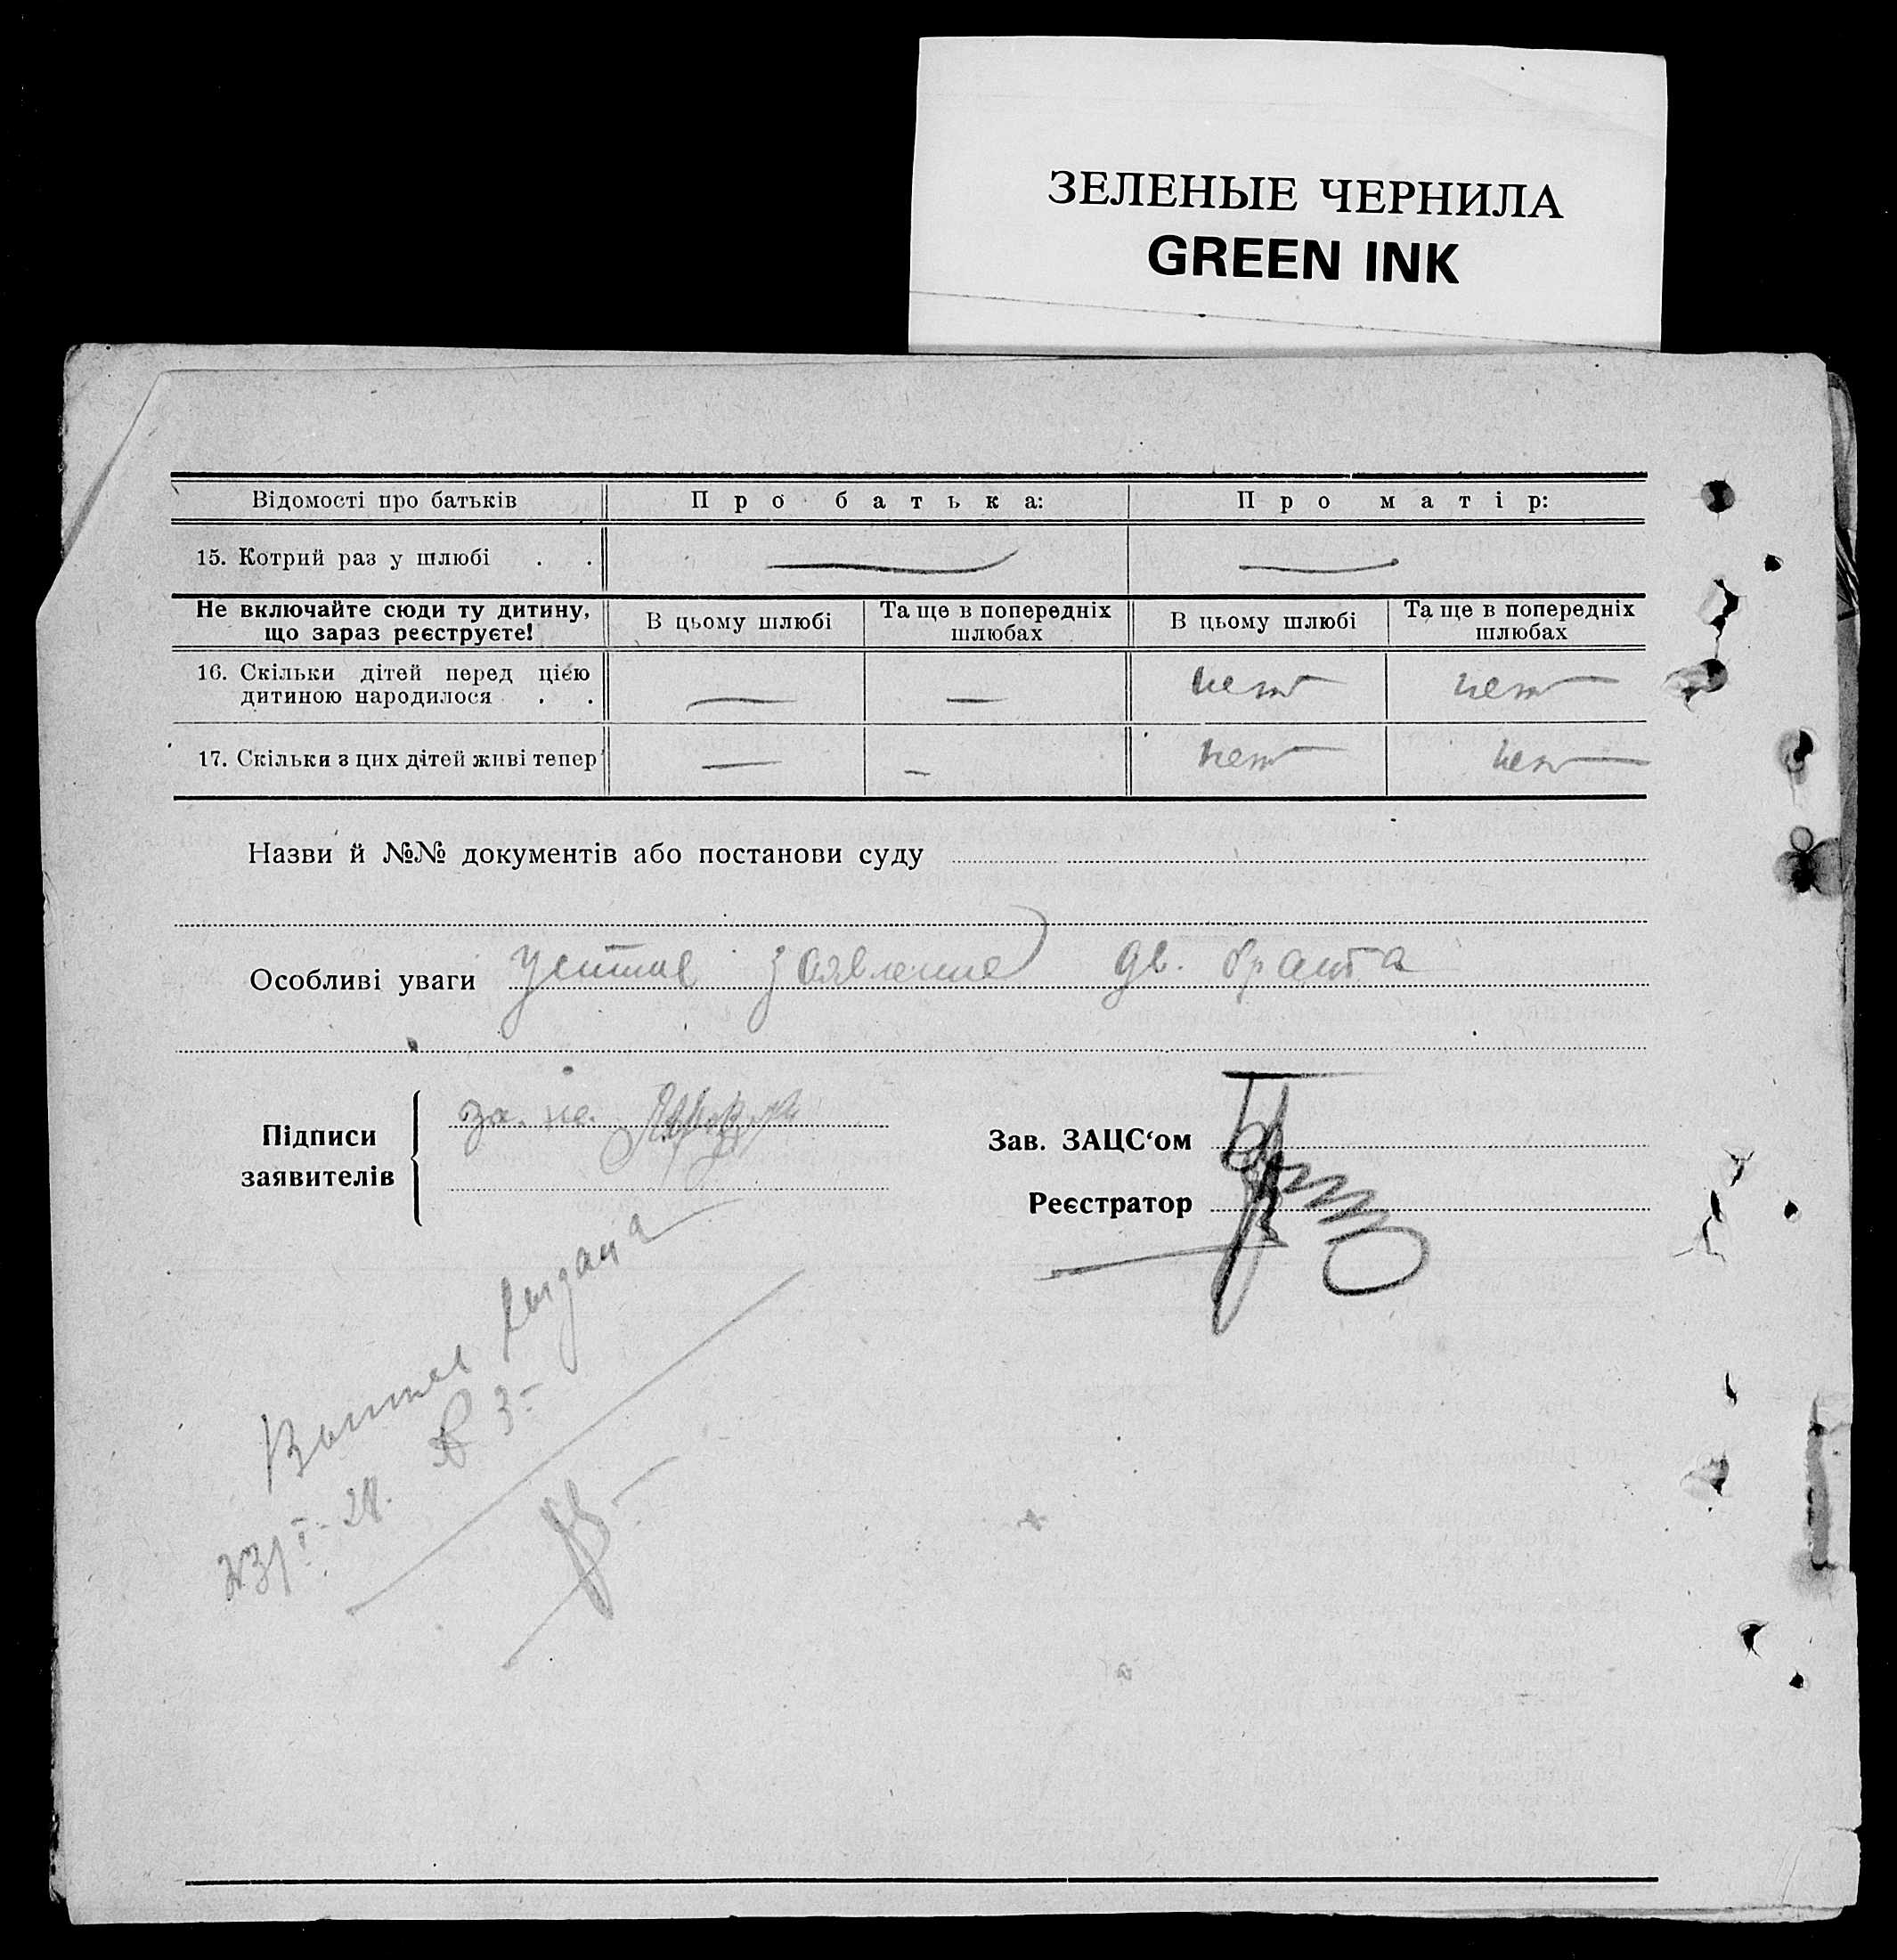 ЗЕЛЕНЫЕ ЧЕРНИЛА
GREEN INK
Відомості про батьків Про батька: Про матір:
15. Котрий раз у шлюбі . . — —
Не включайте сюди ту дитину, що зараз реєструєте! В цьому шлюбі Та ще в попередніх шлюбах В цьому шлюбі Та ще в попередніх шлюбах
16. Скільки дітей перед цією
дитиною народилося . . — — нет нет
17. Скільки з цих дітей живі тепер — — нет нет
Назви й №№ документів або постанови суду
Особливі уваги заявление дв. брата
Підписи заявителів
за. не.
Зав. ЗАЦС‘ом
Реєстратор
выдана